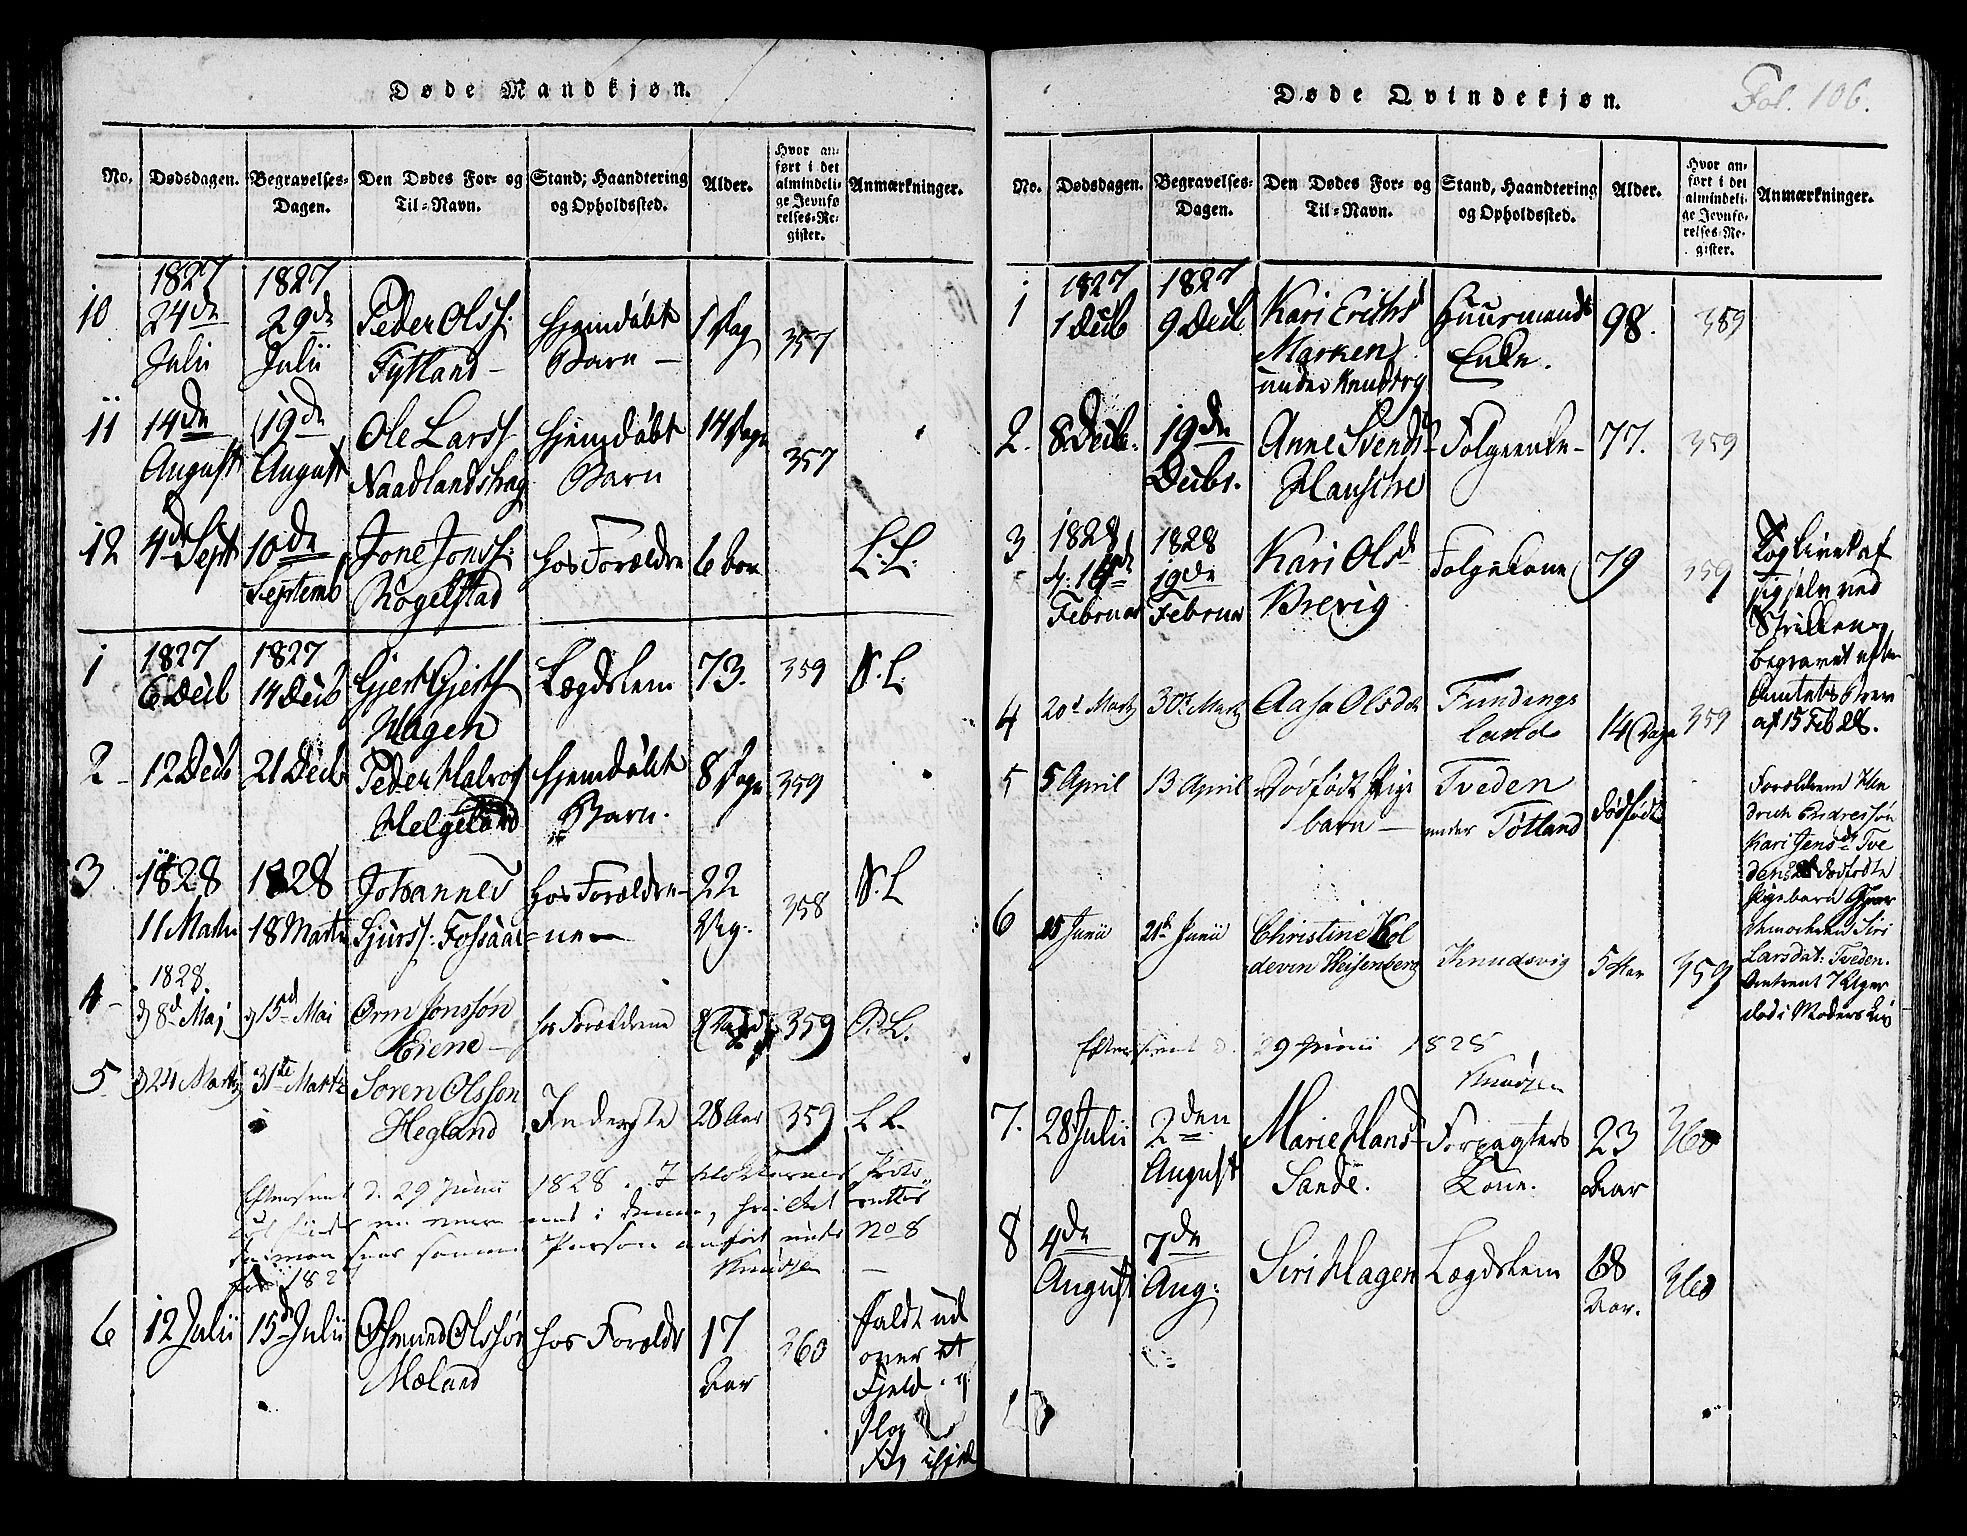 Døde Mandkjøn.
No. Dødsdagen. Begravelses-Dagen. Den Dødes For- og Til-Navn. Stand, Haandtering og Opholdssted. Alder. Hvor anført i det almindelige Jevnførelses-Register. Anmærkninger.
10 1827 24de Julii 1827 29de Julii Peder Olss: Tytland Hjemdøbt Barn 1 Dag 357
11 14de August 19de August Ole Larss Naadlandskrag Hjemdøbt Barn 14 Dage 357
12 4de Sept 10de Septemb Jone Jonss: Røgelstad hos Forældre 6 L: L:
1 1827 6 Decb 1827 14 Decb Gjert Gjerts Hagen Lægdslem 73. 359 S. L.
2 12 Decb 21 Decb Peder Halvors Helgeland Hjemdøbt Barn. 8 Dage 359
3 1828 11 Martii 1828 18 Martii Johannes Sjurss: Fossaae hos Forældrene 22 358 S. L
4 1828. d 8d Maj d 15d Mai Orm Jonssøn Eiene hos Forældrene 8 Dage 359 S. L.
5 d 24 Martz 31te Martz Soren Olsson Hegland Inderste 28 Aar 359 L L.
Efterseet d. 29 Junii 1828. I Klokkerens
No 8
Knudsen
6 12 Julii 15d Julii Osmund Olssøn Mæland hos Forældr 17 Aar 360 faldt ud over et Fjeld og slog sig ihjel
Døde Qvindekjøn.
Fol. 106.
No. Dødsdagen. Begravelses-Dagen. Den Dødes For- og Til-Navn. Stand, Haandtering og Opholdssted. Alder. Hvor anført i det almindelige Jevnførelses-Register. Anmærkninger.
1 1827 1 Decb 1827 9 Decb Kari Erichsd Marken under Huusmands Enke. 98. 359
2. 8 Decb. 19de Decbr. Anne Svendsd Hauschre Folgeenke 77. 359
3 1828 Februar 1828 19de Februar Kari Olsd Brevig Folgekone 79 359 Tog Livet af sig selv ved begravet efter Amtets Brev af 15 Feb 28.
4 20d Martz 30d Martz Aasa Olsdotr Fundingsland 14 Dage 359
5 5 April 13 April Dødfødt Pige barn Tveden under Totland dødfødt Forældrene Hendrich Endressøn Kari Jensd. Tveden dødfødte Pigebarn Siri Larsdat: Tveden. død i Moders Liv
6 15 Junii 21d Junii Christine Holdevin Heisenberg Knudsvig 5 Aar 359
Efterseet d. 29 Junii 1828
Knudsen
7. 28 Julii 2den August Marie Hansd Sande. Forpagters Kone. 23 Aar 360
8 4de August 7de Aug: Siri Hagen Lægdslem 68 Aar. 360